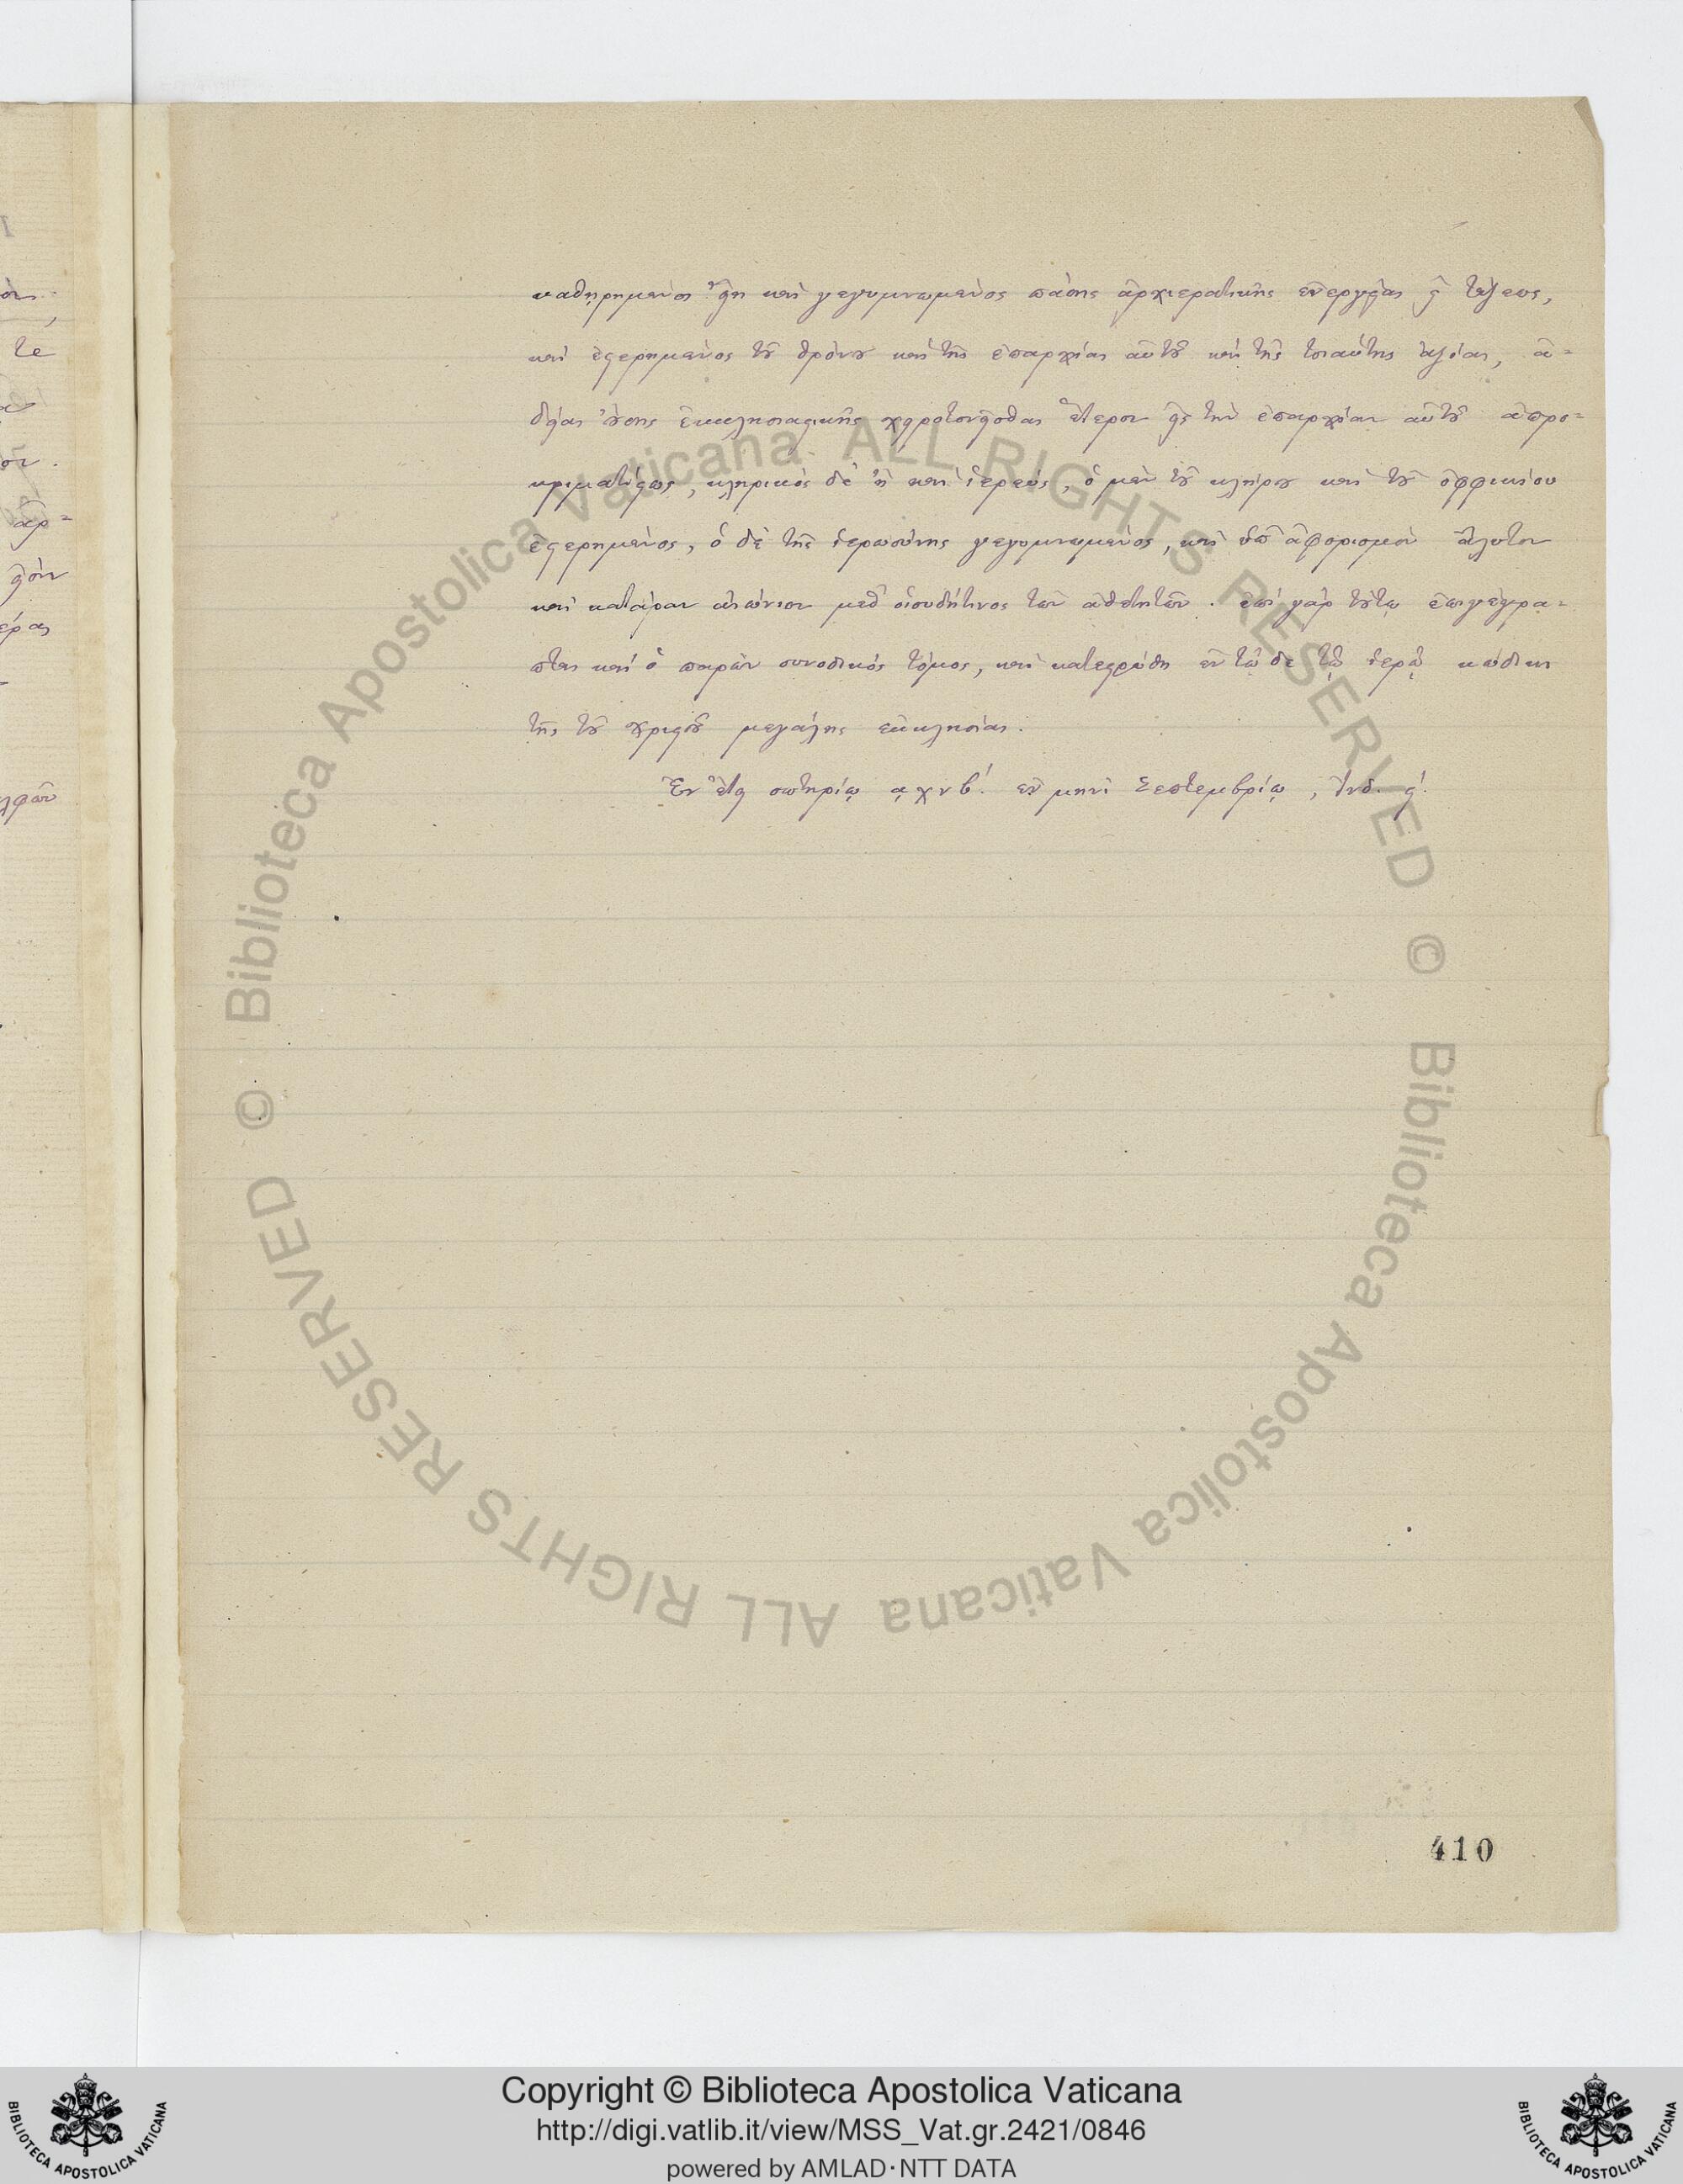 καθηρημένος εἴη καὶ γεγυμνωμένος πάσης ἀρχιερατικῆς ἐνεργείας καὶ τάξεως,
καὶ ἐστερημένος τοῦ θρόνου καὶ τῆς ἐπαρχίας αὐτοῦ καὶ τῆς τοιαύτης ἀξίας, ἀ-
δείας οὔσης ἐκκλησιαστικῆς χειροτονεῖσθαι ἕτερον εἰς τὴν ἐπαρχίαν αὐτοῦ ἀπρο-
κριματίστως, κληρικὸς δὲ ἢ καὶ ἱερεύς, ὁ μὲν τοῦ κλήρου καὶ τοῦ ὀφφικίου
ἐστερημένος, ὁ δὲ τῆς ἱερωσύνης γεγυμνωμένος, καὶ ὑπ' ἀφορισμὸν ἄλυτον
καὶ κατάραν αἰώνιον μεθ' οἱουδήτινος τῶν ἀθετητῶν. ἐπὶ γὰρ τούτῳ ἐπιγέγρα-
πται καὶ ὁ παρὼν συνοδικὸς τόμος, καὶ κατεστρώθη ἐν τῷδε τῷ ἱερῷ κώδικι
τῆς τοῦ χριστοῦ μεγάλης ἐκκλησίας.
Ἐν ἔτει σωτηρίῳ αχνβ΄. ἐν μηνὶ Σεπτεμβρίῳ, Ἰνδ. ς΄.
410
ALL RIGHTS RESERVED © Biblioteca Apostolica Vaticana ALL RIGHTS RESERVED © Biblioteca Apostolica Vaticana
Copyright © Biblioteca Apostolica Vaticana
http://digi.vatlib.it/view/MSS_Vat.gr.2421/0846
powered by AMLAD·NTT DATA
BIBLIOTECA APOSTOLICA VATICANA
BIBLIOTECA APOSTOLICA VATICANA